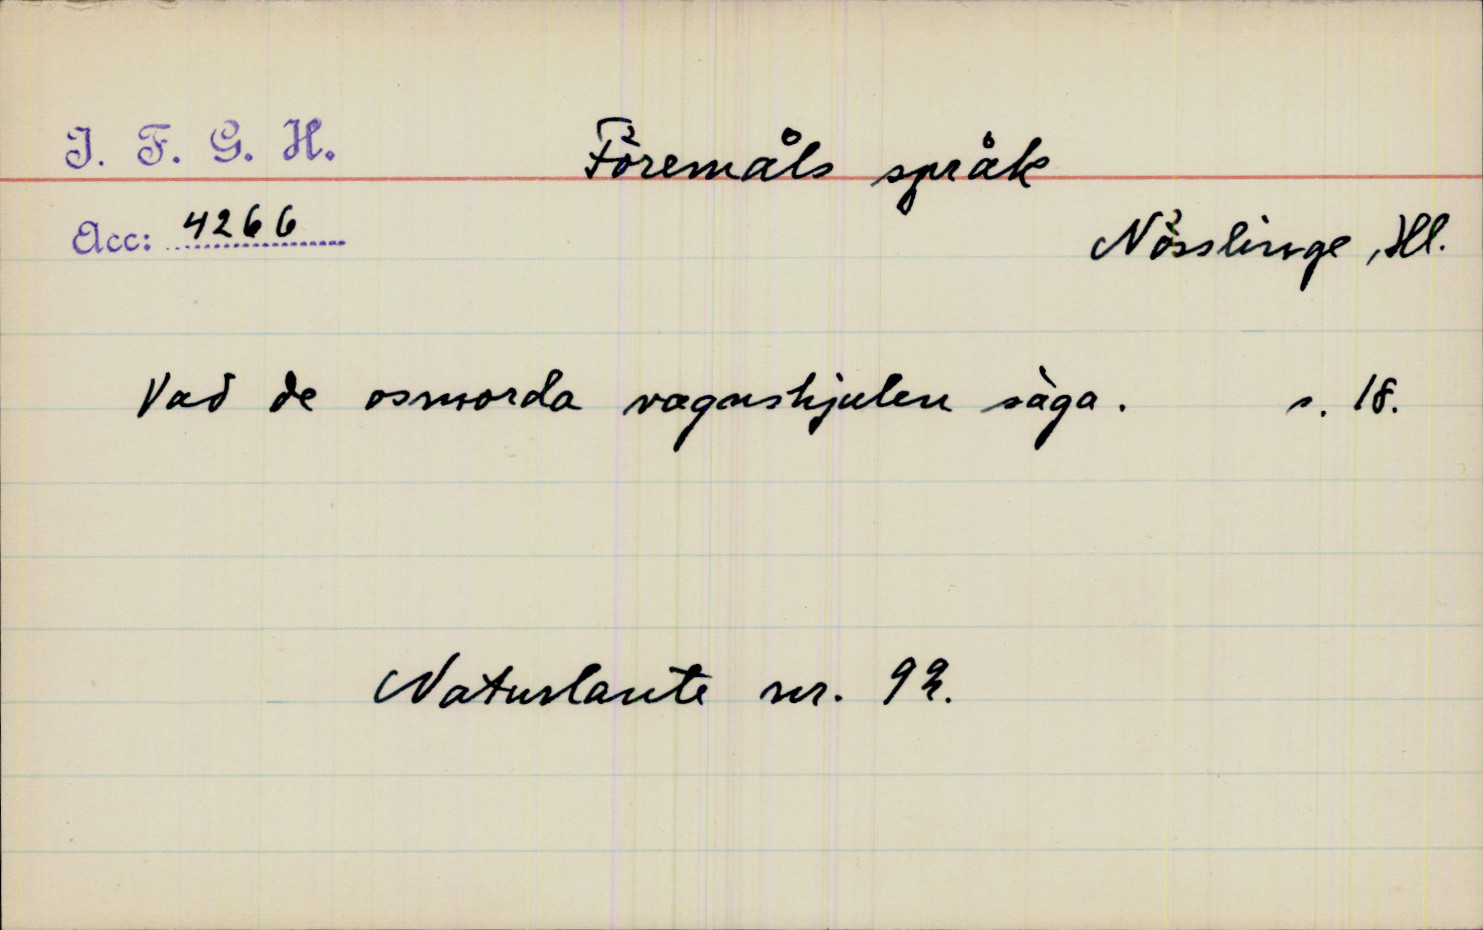 I. F. G. H.
Föremåls språk
Acc: 4266
Nösslinge, Hl.
Vad de osmorda vagnshjulen säga. s. 18.
Naturlaute nr. 92.